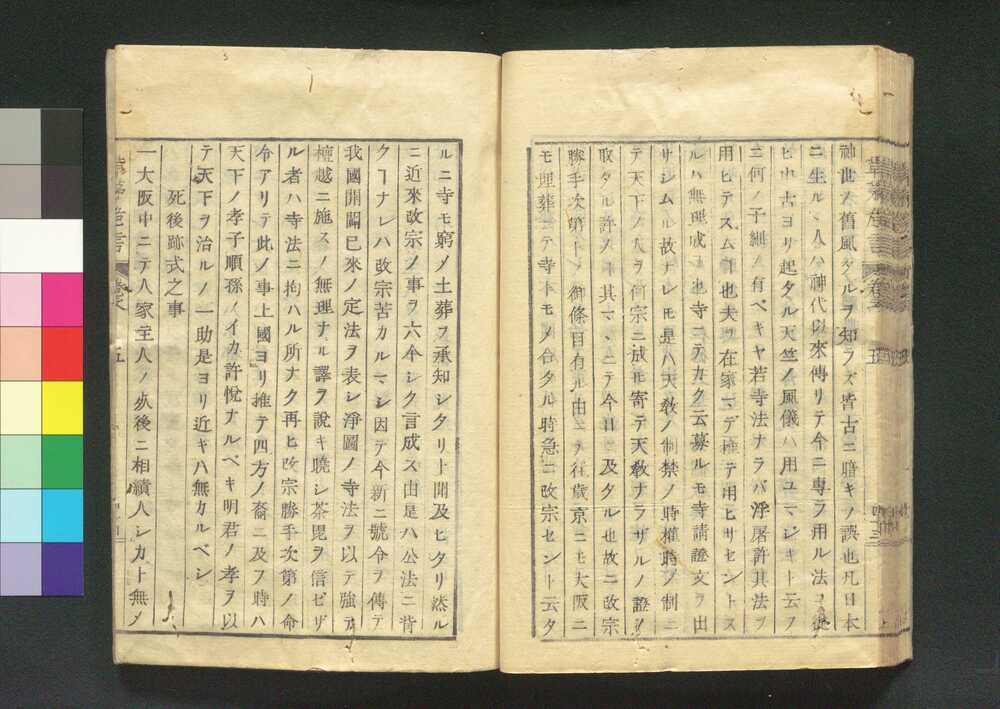 神世ノ舊風タルヲ知ラズ皆古ニ暗キノ誤也凡日本
ニ生ルヽ人ハ神代以來傳リテ今ニ專ラ用ル法ニ從
ヒ中古ヨリ起タル天竺ノ風儀ハ用ユマジキト云フ
ニ何ノ子細ノ有ベキヤ若寺法ナラバ浮屠許其法ヲ
用ヒテスム事也夫ヲ在家マデ推テ用ヒサセントス
ルハ無理成事也寺ニテカク云募ルモ寺請證文ヲ出
サシムル故ナレ𪜈是ハ天教ノ制禁ノ時權時ノ制ニ
テ天下ノ人ヲ何宗ニ成𪜈寄テ天教ナラザルノ證ヲ
取タル許ヌ其マヽニテ今日ニ及タル也故ニ改宗
勝手次第トノ御條目有ル由ニテ往歲京ニモ大阪ニ
モ埋葬ニテ寺トモメ合タル時急ニ改宗セント云タ
ルニ寺モ窮メ土葬ヲ承知シタリト聞及ヒタリ然ル
ニ近來改宗ノ事ヲ六ケシク言成ス由是ハ公法ニ背
クヿナレハ改宗苦カルマシ因テ今新ニ號令ヲ傳テ
我國開闢已來ノ定法ヲ表シ淨圖ノ寺法ヲ以テ強テ
檀越ニ施スノ無理ナル譯ヲ說キ曉シ荼毘ヲ信ゼザ
ル者ハ寺法ニ拘ハル所ナク再ヒ改宗勝手次第ノ命
令アリテ此ノ事上國ヨリ推テ四方ノ裔ニ及フ時ハ
天下ノ孝子順孫ノイカ許悅ナルベキ明君ノ孝ヲ以
テ天下ヲ治ルノ一助是ヨリ近キハ無カルベシ
死後跡式之事
一大阪中ニテ人家主人ノ死後ニ相續人シカト無メ